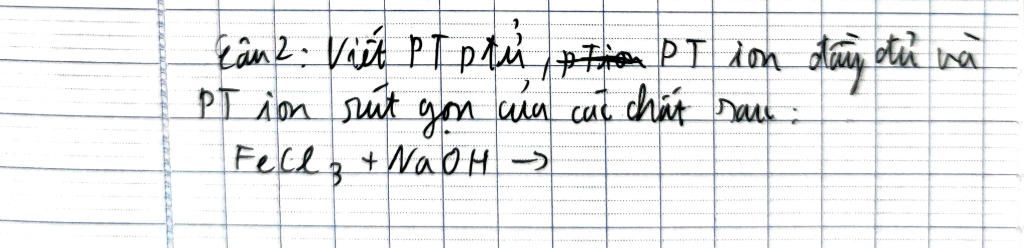 Câu 2: Viết PT ptử, ption PT ion đầy đủ và
PT ion rút gọn của các chất sau:
FeCl₃ + NaOH →